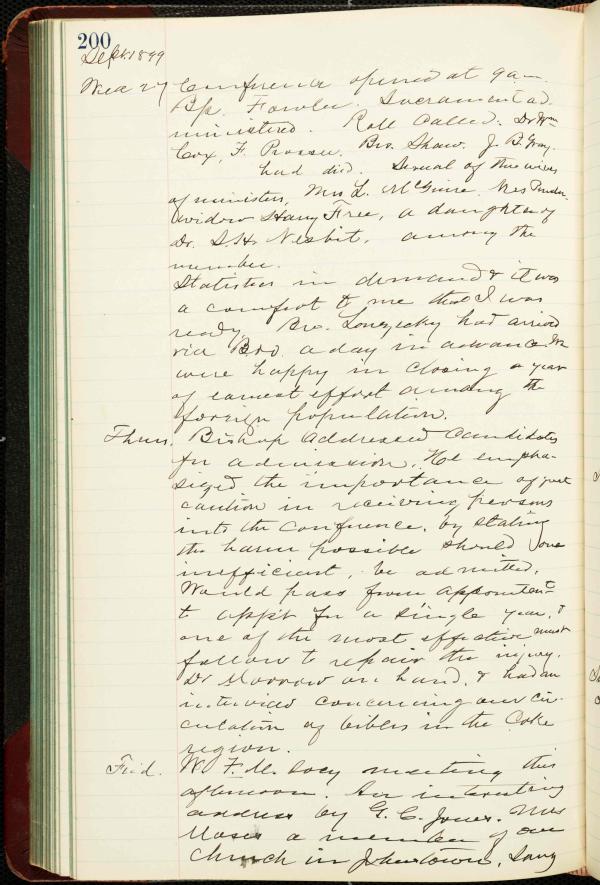 200
Sept. 1899
Wed 27 Conference opened at 9 am.
Bp. Fowler. Sacrament ad-
ministered. Roll Called. Dr Wm
Cox, F. Prosser. Bro. Shaw. J. B. Gray.
had died. Several of the wives
of ministers, Mrs L. McGuire. Mrs
widow Harry Free, a daughter of
Dr. S. H. Nesbit, among the
number.
Statistics in demand & it was
a comfort to me that I was
ready. Bro. had arrived
via B&O a day in advance. We
were happy in closing a year
of earnest effort among the
foreign population.
Thurs. Bishop addressed Candidates
for admission. He empha-
sized the importance of great
caution in receiving persons
into the Conference, by stating
the harm possible should one
inefficient, be admitted.
Would pass from appointent
to appt for a single year, &
one of the most effective must
follow to repair the injury.
Dr Morrow on hand, & had an
interview concerning our cir-
culation of bibles in the Coke
region.
Frid. W. F. M. Socy meeting this
afternoon. An interesting
address by G. C. Jones. Mrs
Moses a member of our
Church in Johnstown, sang